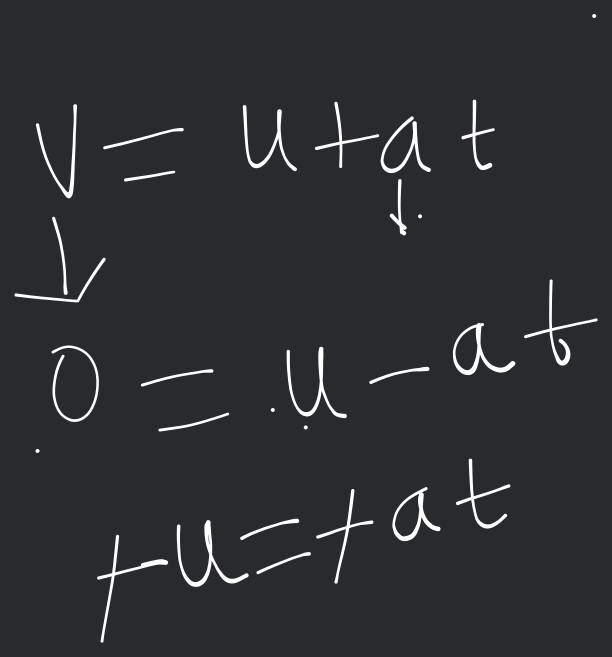 v = u + at
↓ ↓
0 = u - at
+u = +at